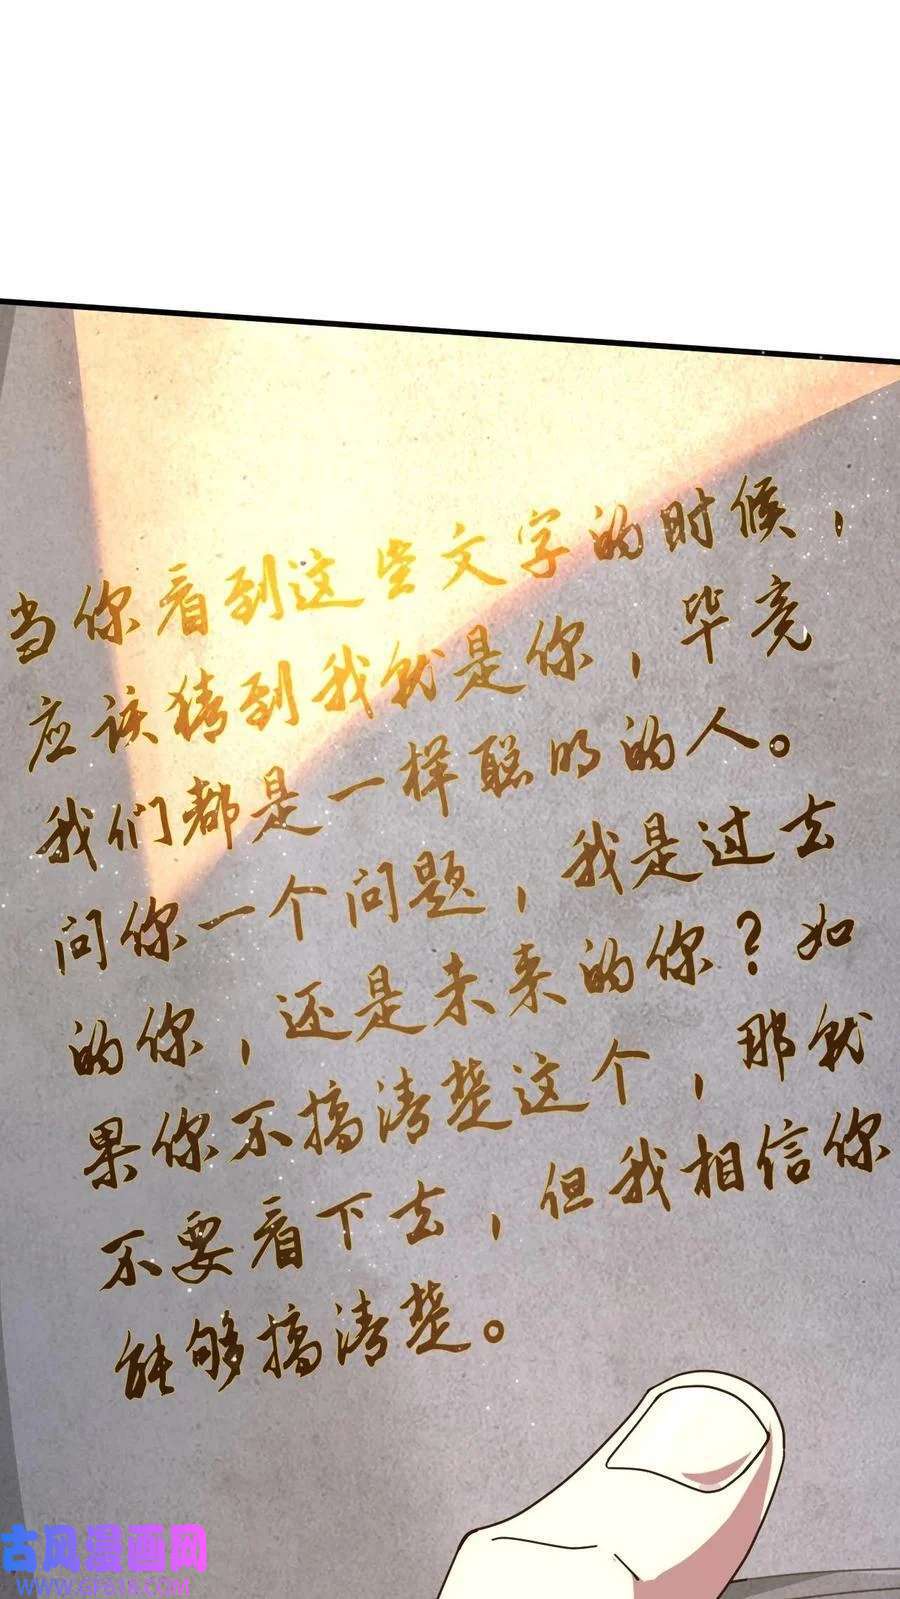 当你看到这些文字的时候，
应该猜到我就是你，毕竟
我们都是一样聪明的人。
问你一个问题，我是过去
的你，还是未来的你？如
果你不搞清楚这个，那就
不要看下去，但我相信你
能够搞清楚。
古风漫画网
WWW.GF618.COM